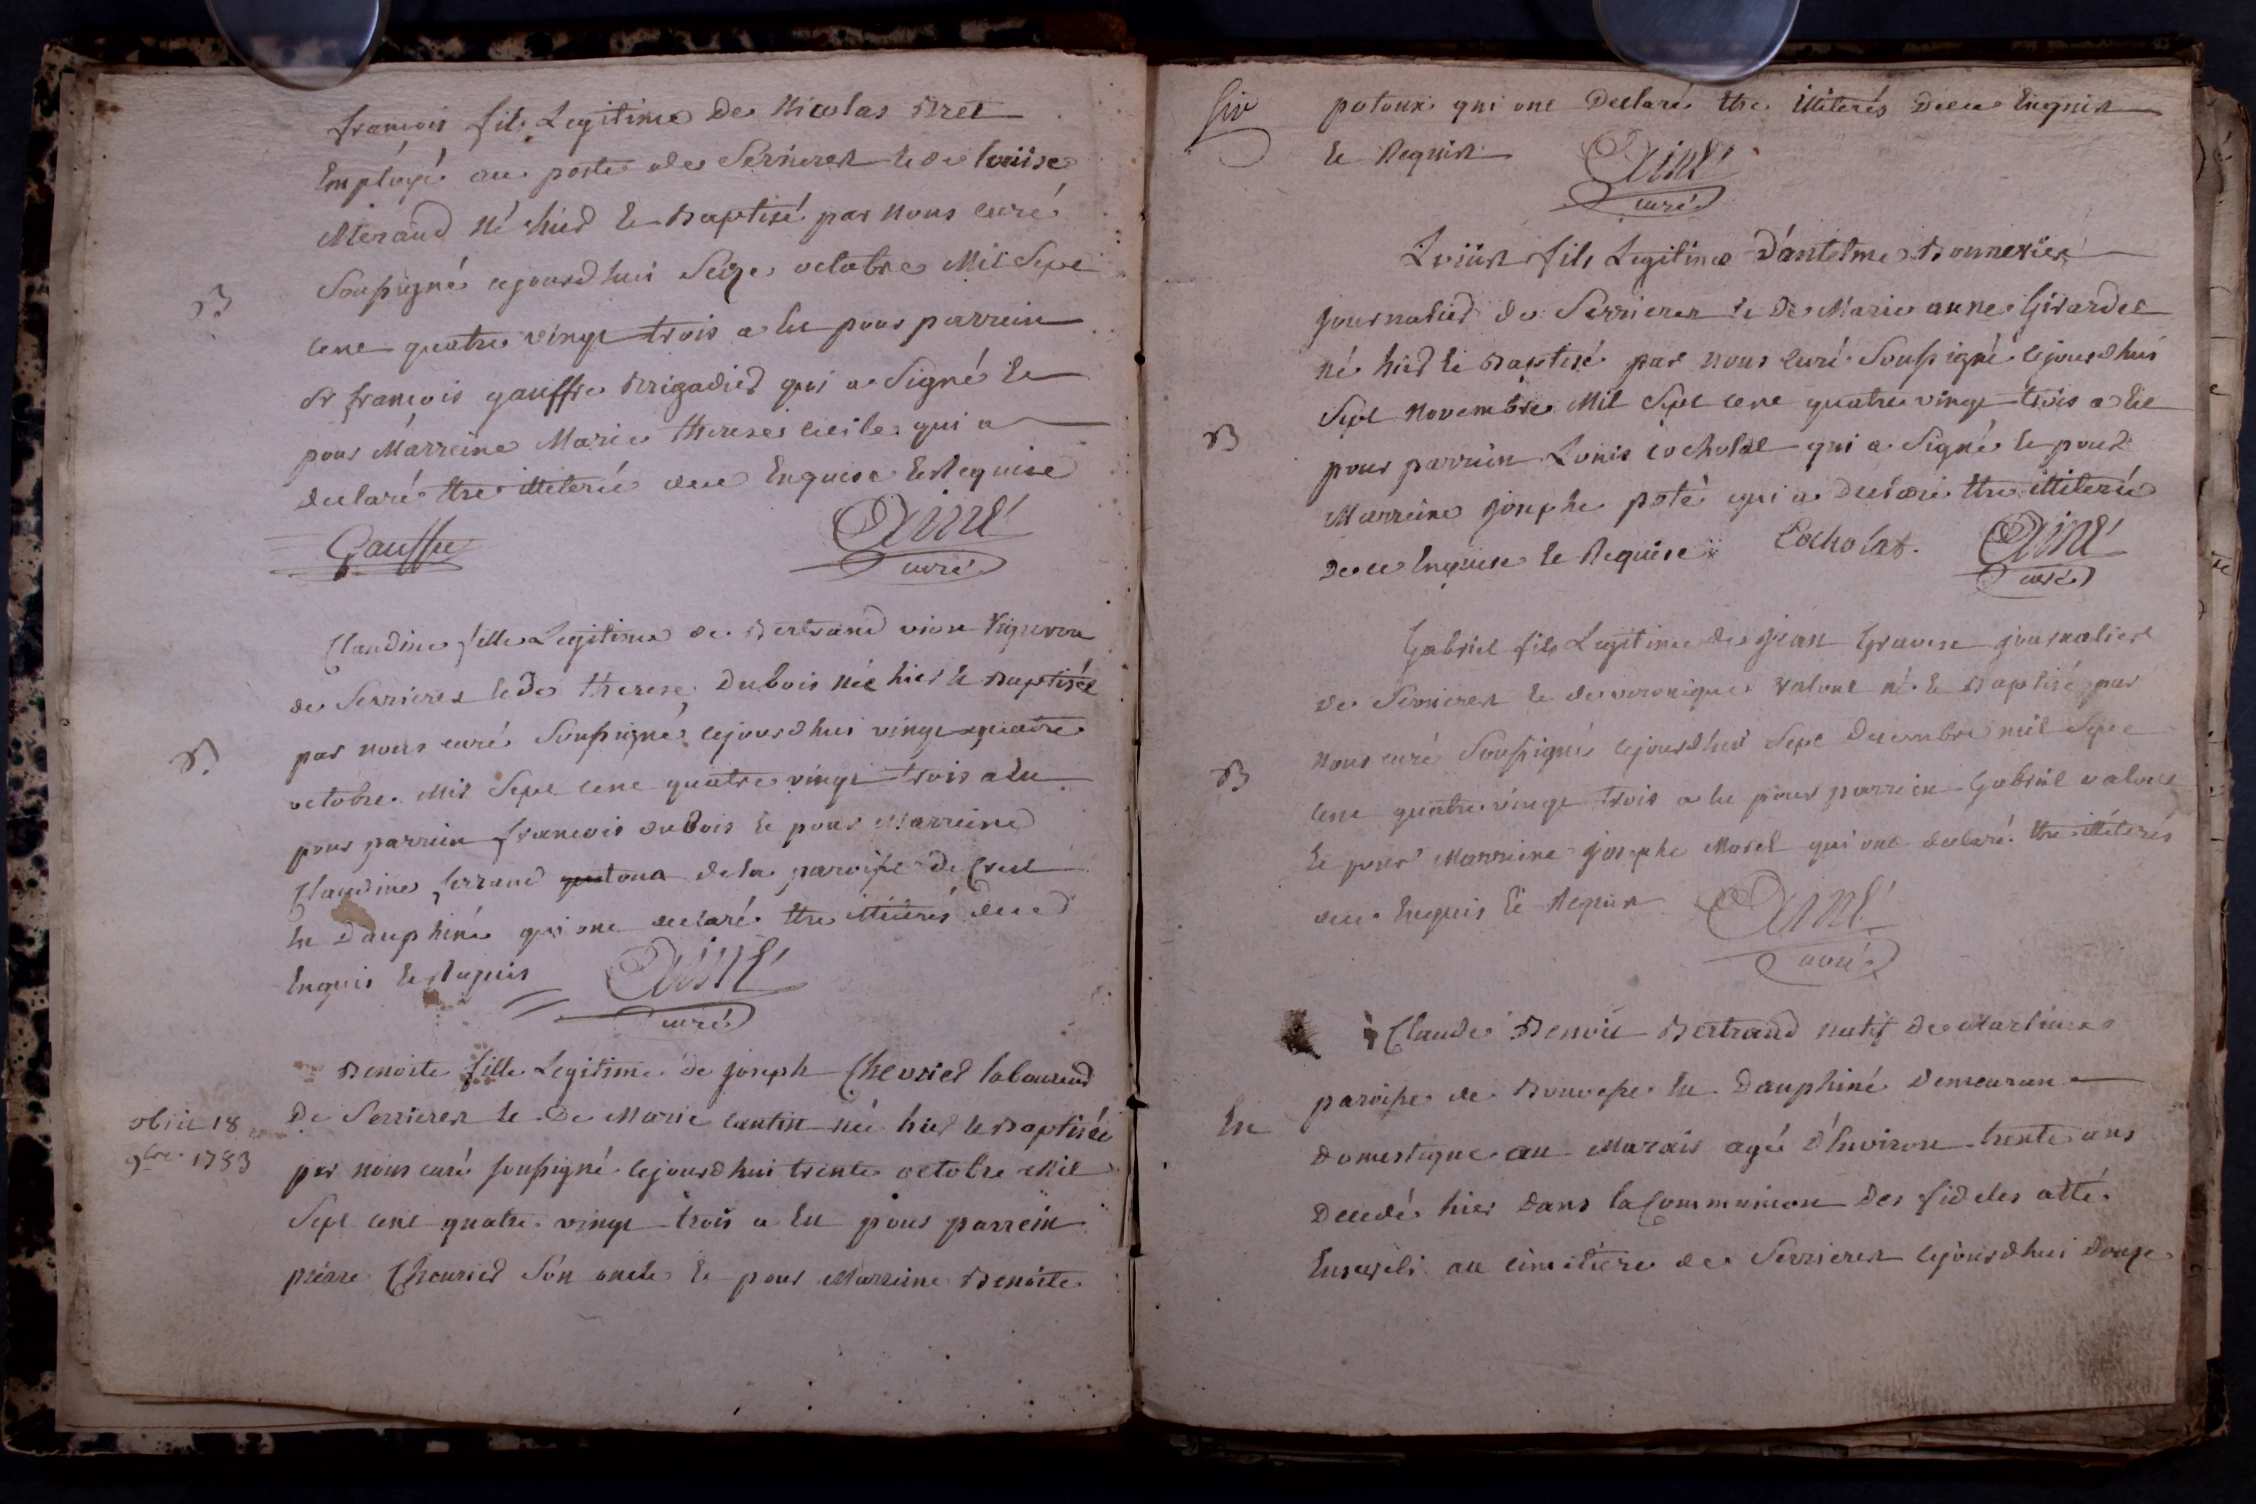 françois fils Legitime De Nicolas Bret
Employé au poste de Serrieres et de louise
Meraud né hier et Baptisé par nous curé
Soussigné cejourdhui Seize octobre Mil Sept
B
cent quatre vingt trois a eu pour parrein
Sr françois gauffre Brigadier qui a Signé et
pour Marreine Marie therese cecile qui a
declaré etre illiterée de ce Enquise et Requise
Gauffre
Ainé
curé
Claudine fille Legitime de Bertrand vion Vigneron
de Serrieres et de therese Dubois née hier et Baptisée
par nous curé Soussigné cejourdhui vingt quatre
B
octobre Mil Sept cent quatre vingt trois a eu
pour parrein francois dubois et pour Marreine
Claudine ferrand de la paroisse de Creie
En Dauphiné qui ont declaré etre illiterés de ce
Enquis et Requis
Ainé
curé
Benoite fille Legitime de joseph Chevrier laboureur
De Serrieres et De Marie cantin née hier et Baptisée
obiit 18
9bre 1783
par nous curé soussigné cejourdhui trente octobre Mil
Sept cent quatre vingt trois a Eu pour parrein
pierre Chevrier Son oncle et pour Marreine Benoite
Siv
patoux qui ont Declaré etre illiterés De ce Enquis
et Requis
Ainé
curé
Louis fils Legitime D'antelme Bonnevier
journalier de Serrieres et De Marie anne Girardet
né hier et Baptisé par nous curé Soussigné cejourdhui
Sept novembre Mil Sept cent quatre vingt trois a Eu
B
pour parrein Louis cocholat qui a Signé et pour
Marreine josephe poté qui a Declaré etre illiterée
De ce Enquise et Requise
Cocholat.
Ainé
curé
Gabriel fils Legitime de jean Gravest journalier
de Serrieres et de veronique valout né et Baptisé par
nous curé Soussigné cejourdhui Sept decembre mil Sept
B
cent quatre vingt trois a eu pour parrein Gabriel valout
et pour Marreine josephe Morel qui ont declaré etre illiterés
de ce Enquis et Requis
Ainé
curé
Claude Benoit Bertrand natif de Martinas
paroisse de Bouvesse En Dauphiné Demeurant
En
Domestique au Marais agé d'Environ trente ans
Decedé hier Dans la Communion Des fideles a été
Enseveli au cimetiere de Serrieres cejourdhui Douze